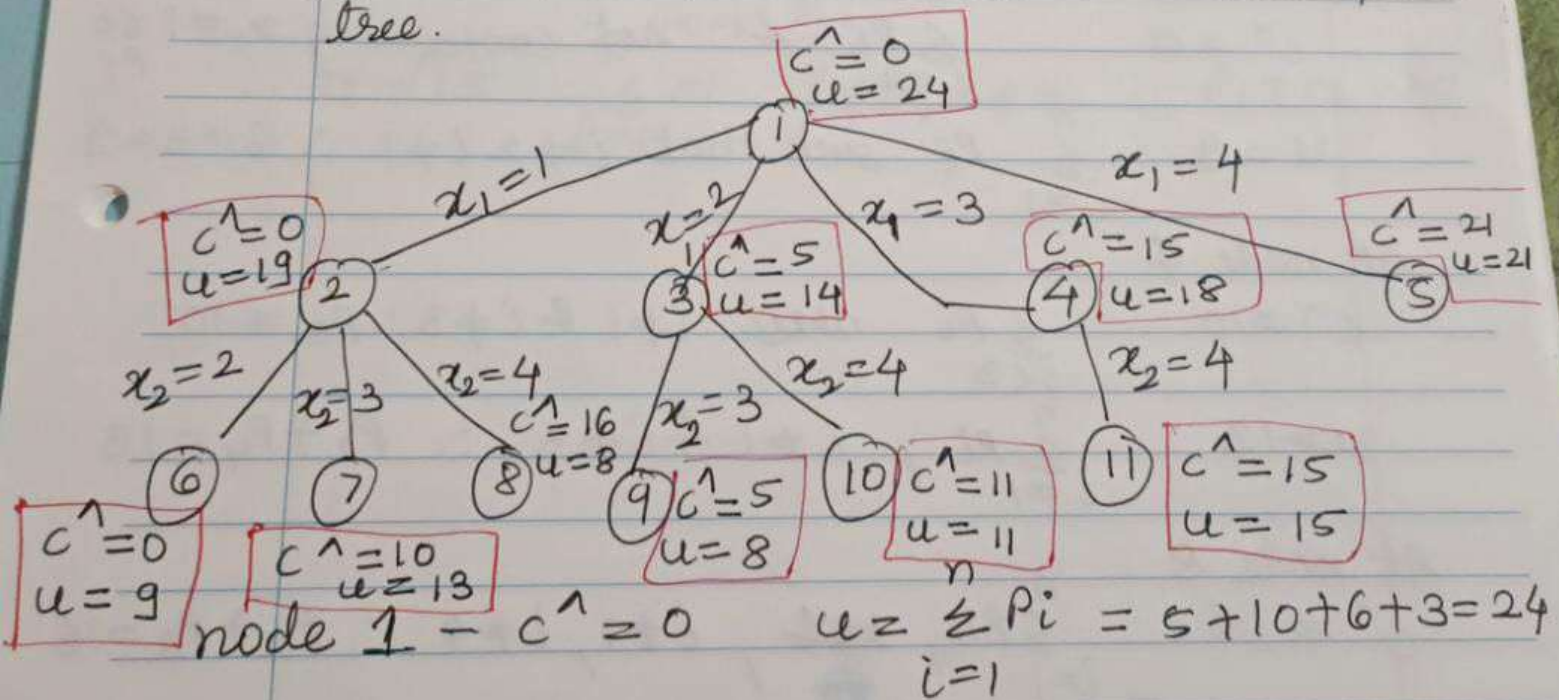 tree.
c^=0
u=24
1
x1=1
x1=2
x1=3
x1=4
c^=0
u=19
2
3
c^=5
u=14
4
c^=15
u=18
5
c^=21
u=21
x2=2
x2=3
x2=4
x2=3
x2=4
x2=4
6
7
8
c^=16
u=8
9
c^=5
u=8
10
c^=11
u=11
11
c^=15
u=15
c^=0
u=9
c^=10
u=13
node 1 - c^=0 u= n Σ Pi = 5+10+6+3=24
i=1